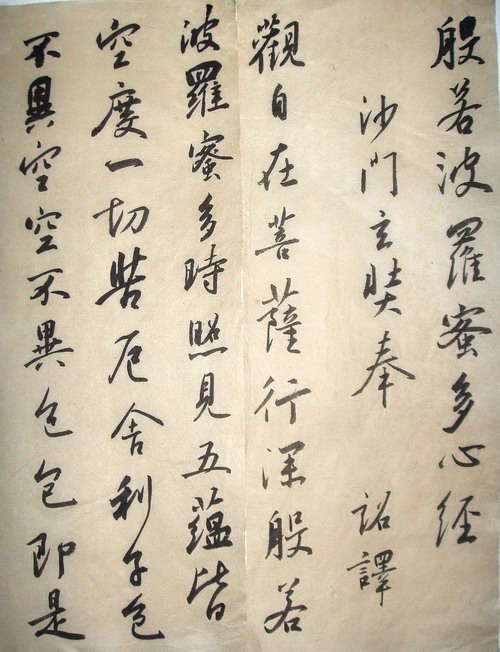 般若波羅蜜多心經
沙門玄奘奉 詔譯
觀自在菩薩行深般若
波羅蜜多時照見五蘊皆
空度一切苦厄舍利子色
不異空空不異色色即是